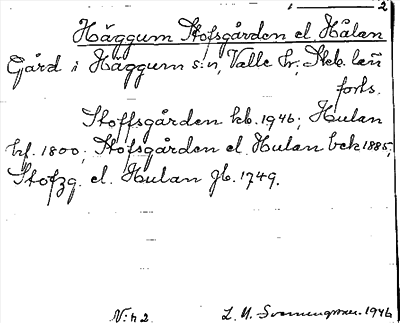 2
Häggum Stofsgården el. Hålan
Gård i Häggum s:n, Valle hr; Skb. län
forts.
Stoffsgården kb. 1946; Hulan
hf. 1800; Stofsgården el. Hulan bek 1885;
Stofzg. el. Hulan jb. 1749.
N:h 2 L. H. 1946